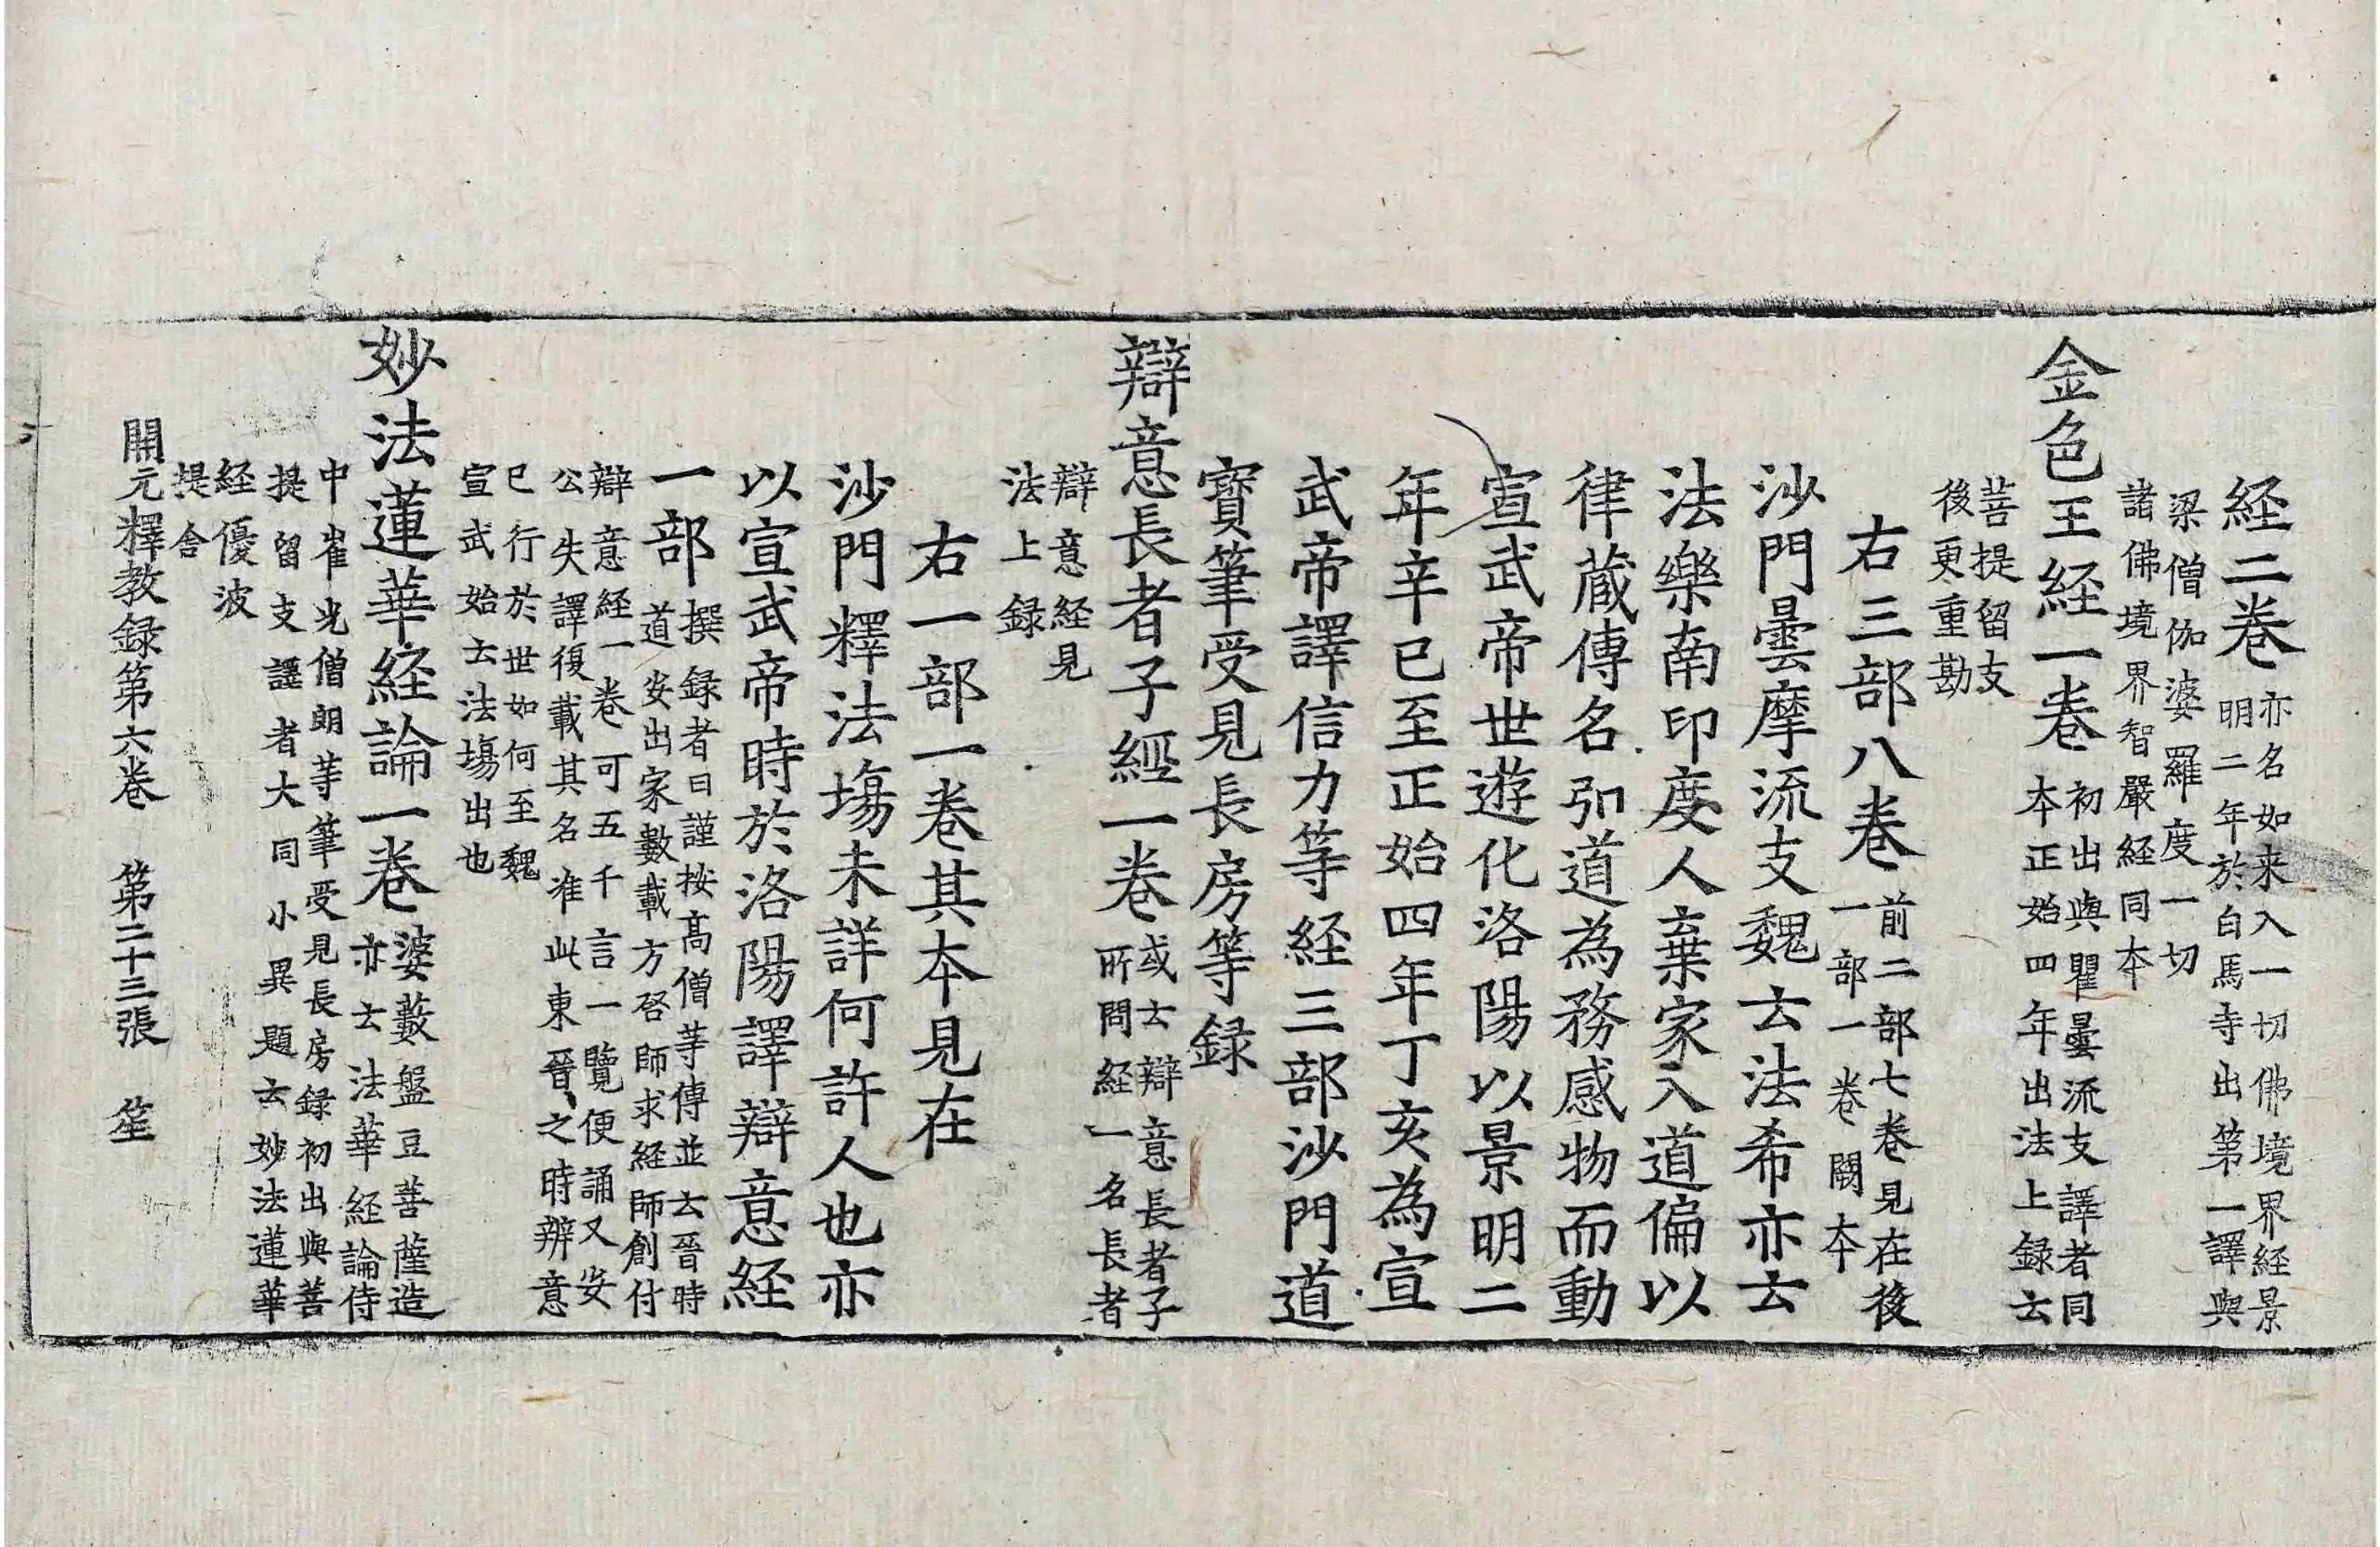 経二巻亦名如来入一切佛境界経景
明二年於白馬寺出第一譯與
梁僧伽婆羅度一切
諸佛境界智嚴経同夲
金色王経一巻初出與瞿曇流支譯者同
夲正始四年出法上録云
菩提留支
後更重勘
右三部八巻前二部七巻見在後
一部一巻闕夲
沙門曇摩流支魏云法希亦云
法樂南印度人棄家入道偏以
律蔵傳名弘道為務感物而動
宣武帝世遊化洛陽以景明二
年辛巳至正始四年丁亥為宣
武帝譯信力等経三部沙門道
寳筆受見長房等録
辯意長者子經一巻或云辯意長者子
所問経一名長者
辯意経見
法上録
右一部一巻其夲見在
沙門釋法場未詳何許人也亦
以宣武帝時於洛陽譯辯意経
一部撰録者曰謹按髙僧等傳並云晉時
道安出家數載方啓師求経師創付
辯意経一巻可五千言一覽便誦又安
公失譯復載其名准此東晉之時辨意
已行於世如何至魏
宣武始云法場出也
妙法蓮華経論一巻婆藪盤豆菩薩造
亦云法華経論侍
中崔光僧朗等筆受見長房録初出與菩
提留支譯者大同小異題云妙法蓮華
経優波
提舎
開元釋教録第六巻 第二十三張 笙